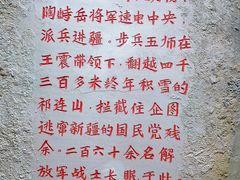 陶峙岳将军速电中央，
派兵进疆。步兵五师在
王震带领下，翻越四千
三百多米终年积雪的
祁连山，拦截住企图
逃窜新疆的国民党残
余。二百六十余名解
放军战士长眠于此